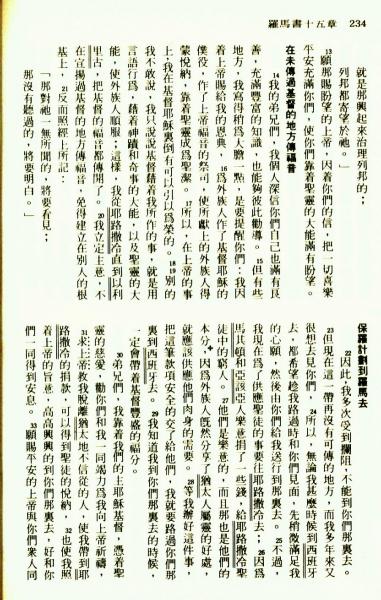 羅馬書十五章 234
就是那興起來治理列邦的；
列邦都寄望於祂。」
13願那賜盼望的上帝，因着你們的信，把一切喜樂
平安充滿你們，使你們靠着聖靈的大能滿有盼望。
在未傳過基督的地方傳福音
14我的弟兄們，我個人深信你們自己也滿有良
善，充滿豐富的知識，也能夠彼此勸導。15但有些
地方，我寫得稍為大膽一點，是要提醒你們；我因
着上帝賜給我的恩典，16為外族人作了基督耶穌的
僕役，作了上帝福音的祭司，使所獻上的外族人得
蒙悅納，靠着聖靈成為聖潔。17所以，在上帝的事
上，我在基督耶穌裏倒有可以引以為榮的。18別的
我不敢說，我只說說基督藉着我所作的事，就是用
言語行為，藉着神蹟和奇事的大能，以及聖靈的大
能，使外族人順服；這樣，我從耶路撒冷直到以利
里古，把基督的福音都傳開了。20我立定主意，不
在宣揚過基督的地方傳福音，免得建立在別人的根
基上，21反而照經上所記：
「那對祂一無所聞的，將要看見；
那沒有聽過的，將要明白。」
保羅計劃到羅馬去
22因此，我多次受到攔阻，不能到你們那裏去。
23但現在這一帶再沒有可傳的地方，而我多年來又
很想去見你們，24所以，無論我甚麼時候到西班牙
去，都希望趁我路過時和你們見面，先稍微滿足我
的心願，然後由你們給我送行到那裏去。25不過，
我現在為了供應聖徒的事要往耶路撒冷去；26因為
馬其頓和亞該亞人樂意捐了一些錢，給耶路撒冷聖
徒中的窮人。27他們是樂意的，而且那也是他們的
本分，因為外族人既然分享了猶太人屬靈的好處，
就應該供應他們肉身的需要。28等我辦好這件事，
把這筆款項安全的交了給他們，我就要路過你們那
裏到西班牙去。29我知道我到你們那裏去的時候，
一定會帶着基督豐盛的福分。
30弟兄們，我靠着我們的主耶穌基督，憑着聖
靈的慈愛，勸你們和我一同竭力的為我向上帝祈禱，
31求上帝救我脫離猶太地不信從的人，使我帶到耶
路撒冷的捐款，可以得到聖徒的悅納，32也使我照
着上帝的旨意，高高興興的到你們那裏去，好和你
們一同得到安息。33願賜平安的上帝與你們眾人同